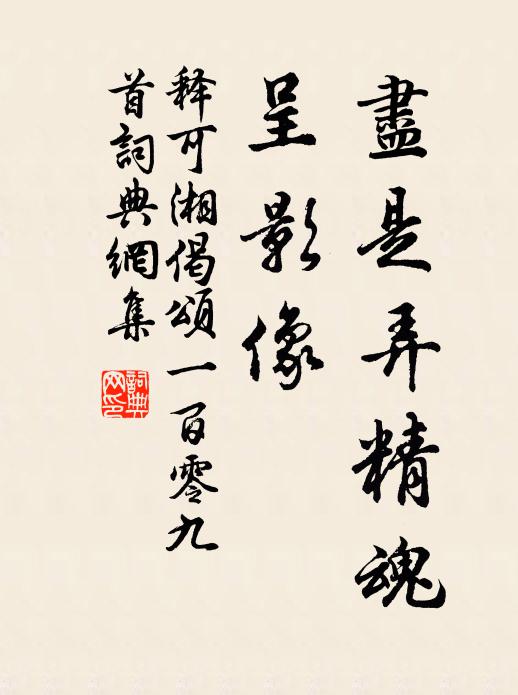 盡是弄精魂
呈影像
释可湘偈頌一百零九
首詞典網集
詞典網印